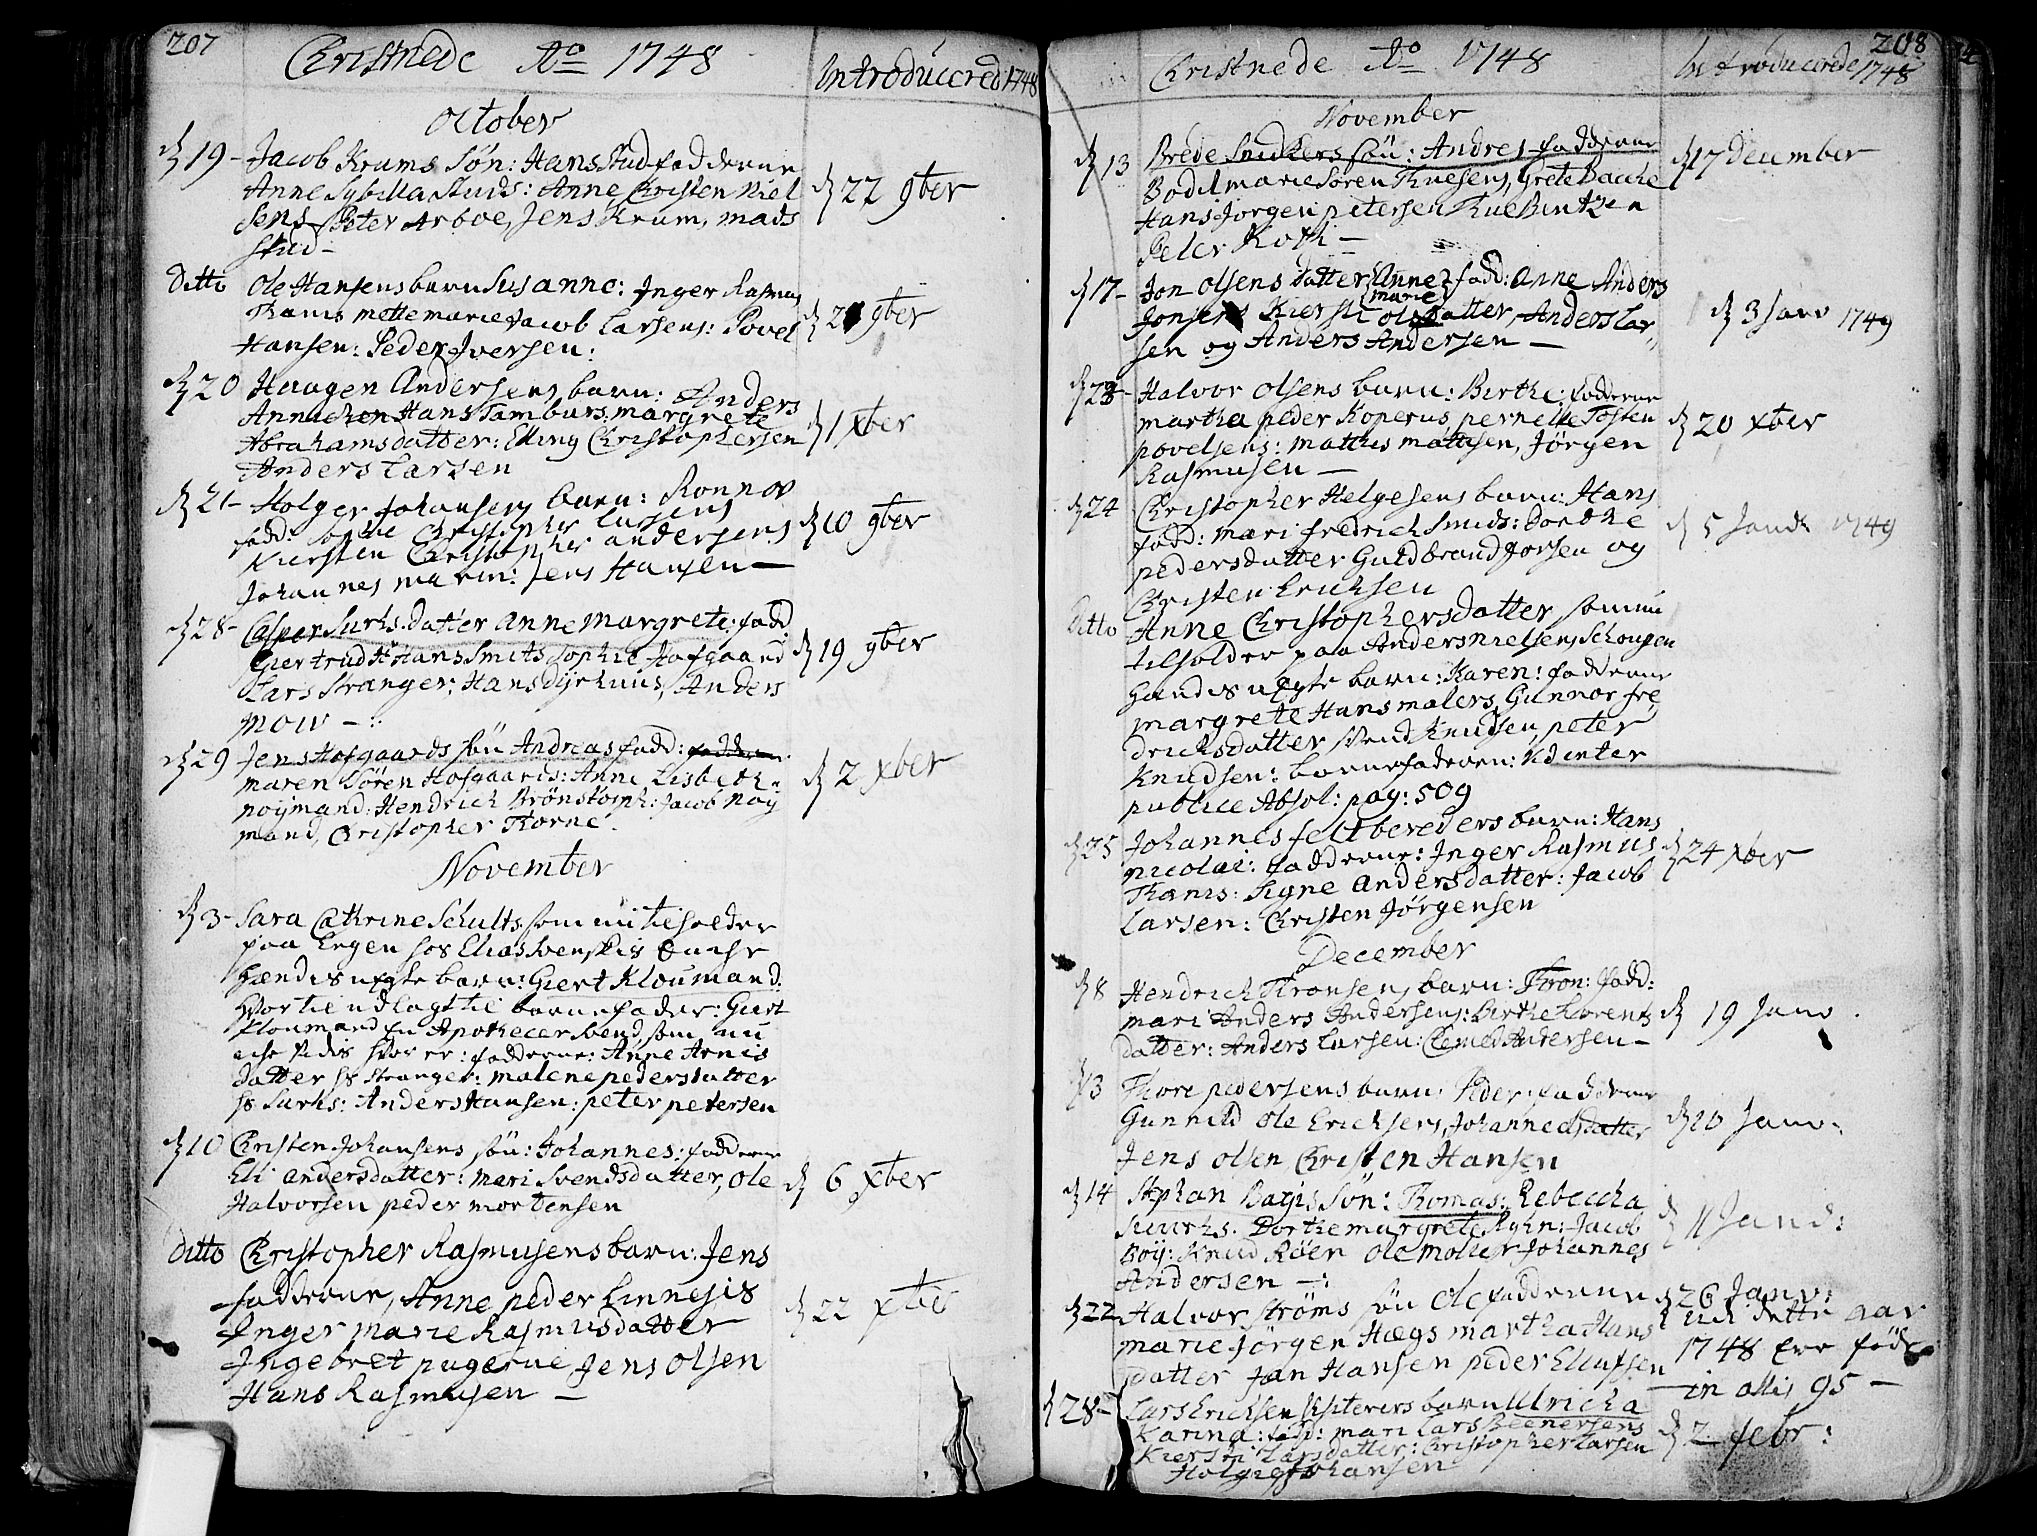 207
Christnede Ao 1748
Introducered 1748
October
d 19 - Jacob Krums Søn: Hans Stud fadderne
Anne Sybilla Stuids: Anne Christen Niel
sens Peter Arboe, Jens Krum, mads
Stud -
d 22 9ber
Ditto Ole Hansens barn Susanne: Inger Rasmus
Thanis mette marie Jacob Larsens: Povel
Hansen: Peder Iversen:
9ber
d 20 Haagen Andersens barn: Anders
Hans Tamburs margrete
Abrahamsdatter: Elling Christophersen
Anders Larsen
d 1 xber
d 21 - Holger Johansens barn: Ronnov
fadd: Sophie Christopher Larsens
Kiersten Christopher andersens
Johannes marin: Jens Hansen -
d 10 9ber
d 28 - Casper Surks datter anne margrete: fadd
Giertrud Hans Smits Sophie Hofgaard
Lars Stranger; Hans dyrhuus, Anders
mow -:
d 19 9ber
d 29 Jens Hofgaards søn Andreas fadd:
maren Sören Hofgaards: Anne Lisbeth
noymand: Hendrich Brønstorph: Jacob Noy
mand, Christopher Thorne.
d 2 xber
November
d 3 - Sara Cathrine Schults som nu tilholder
paa hos Elias Svenskis Enche
hændes uegte barn: Giert Kloumand:
hvor til udlagt til barnefader: Giert
Kloumand En Apothecer Svend, som nu
eche vidis hvor er: fadderne: Anne Arnis
datter hs Stranger: malene pedersdatter
hs Surks: Anders Hansen: peter petersen
d 10 Christen Johansens søn: Johannes: fadderne
Eli andersdatter: mari Svendsdatter, Ole
Halvorsen peder mortensen
d 6 xber
Ditto Christopher Rasmusens barn: Jens
fadderne, Anne peder Linnesis
Inger marie Rasmusdatter
Ingebret Jens Olsen
Hans Rasmusen -
d 22 xber
208
Christnede Ao 1748
Introducerede 1748
November
d 13 Brede Snidkers søn: Andres fadderne
Bodil marie Soren Thuesens, Grete Bache
Hans Jorgen petersen Thue Bentzen
Peter Koth -
d 17 december
d 17 - Jon Olsens datter Anne fadd: Anne Anders
marie
Jonsens Kiersti Olsdatter, Anders Lar
sen og Anders Andersen -
d 3 Janv 1749
d 23 - Halvor Olsens barn: Birthe: fadderne
martha peder Koperus, pernelle Tosten
povelsens: matthis mattisen, Jörgen
Rasmusen -
d 20 xber
d 24 Christopher Helgesens barn: Hans
fadd: mari fredrich Smids: Dorthe
pedersdatter Guldbrand Jorsen og
Christen Erichsen
d 5 1749
Ditto Anne Christophersdatter som nu
tilholder paa Anders nielsens Schougen
Hændes uegte barn: Karen: fadderne
margrete Hans malers, Gunnor fre
drichsdatter Svend Knudsen, peter
Knudsen: barnefaderen:
publice Absol: pag: 509
d 25 Johannes feltbereders barn: Hans
nicolai: fadderne: Inger Rasmus
Thanis: Signe andersdatter: Jacob
Larsen: Christen Jörgensen
d 24 xber
December
d 8 Hendrich Thronsens barn: Thron: fadd:
mari Anders Andersens: Birthe Lorentz
datter: Anders Larsen: Clemed Andersen -
d 19 Janv
13 Thore pedersens barn: Peder: fadderne
Gunnild Ole Erichsens, Johanne olsdatter
Jens Olsen Christen Hansen
d 10 Janv:
d 14 Stephan Bagis Søn: Thomas: Rebeccha
Surks. Dorthe margrete Ryhn: Jacob
Boy: Knud Röen Ole moller Johannes
Andersen -:
d 11
d 22 Halvor Strøms søn Ole fadderne
marie Jörgen Hægs martha Hans
datter Jan Hansen peder Ellufsen
d 26 Janv:
Udi dette aar
1748 Ere föd
in allis 95 -
d 28 - Lars Erichsen barn Ulricha
Karina: fadd: mari Lars
Kiersti Larsdatter: Christopher Larsen
Holger Johansen
d 2 febr: